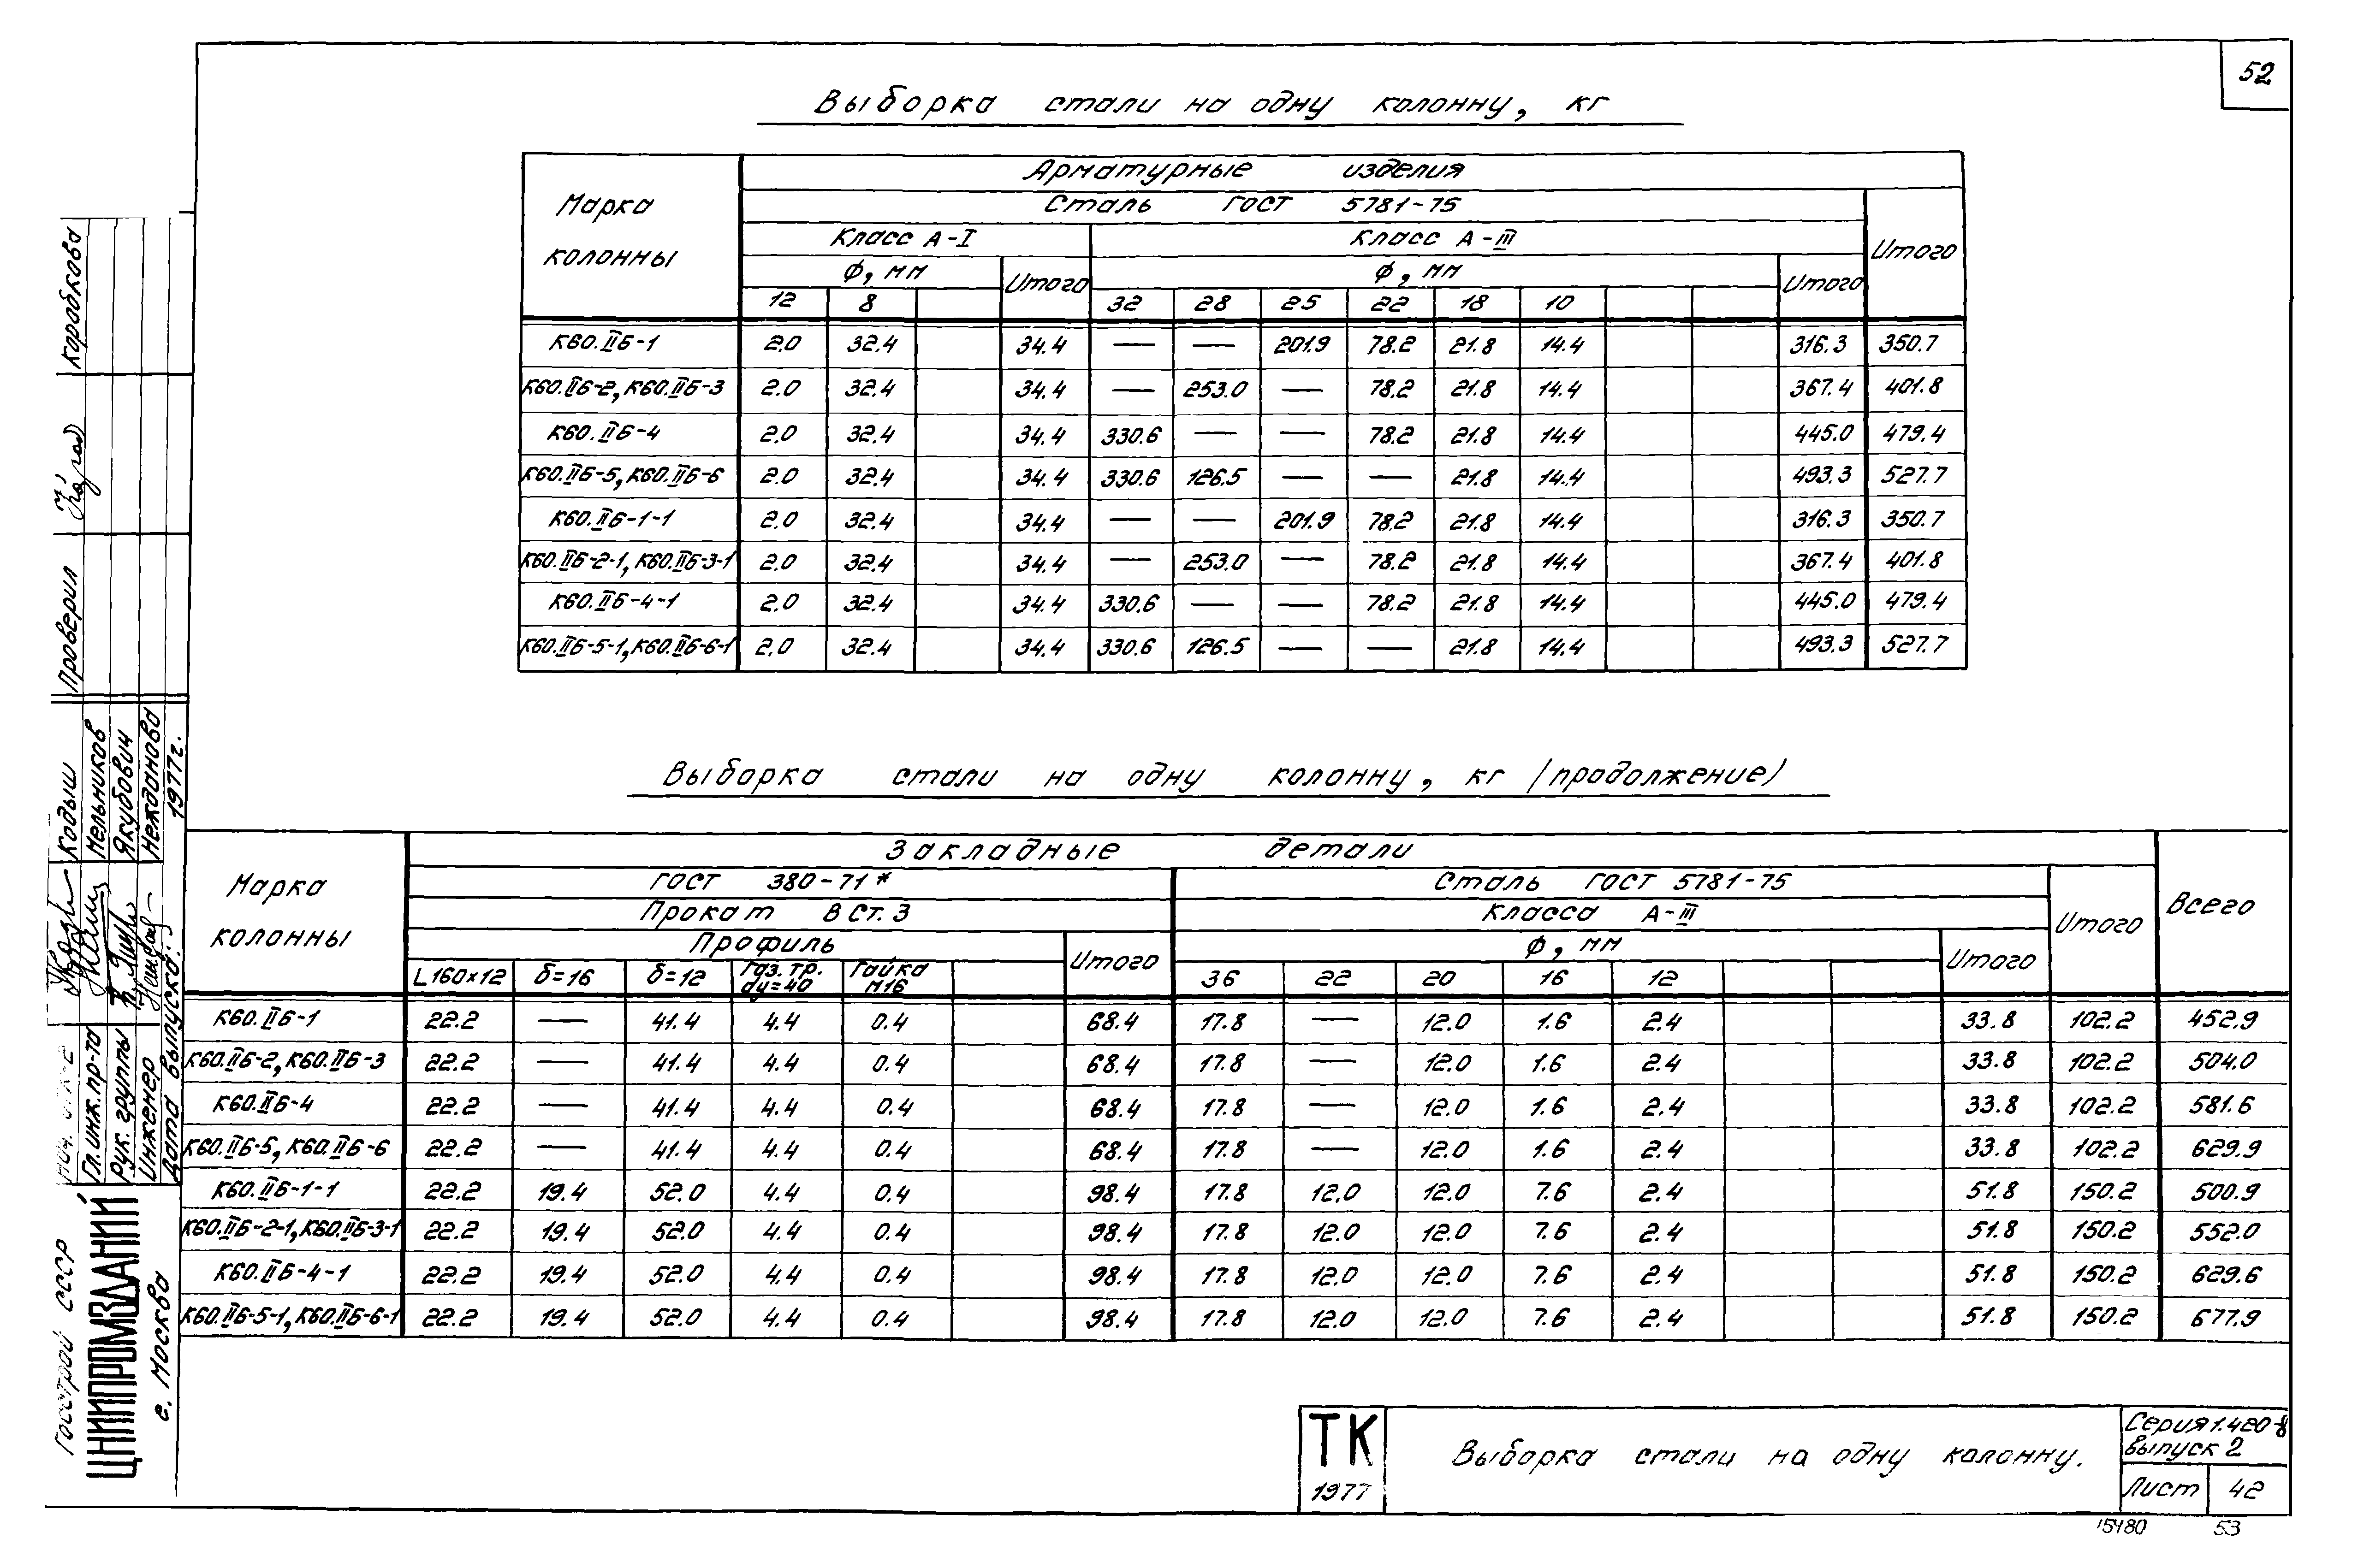 52
Выборка стали на одну колонну, кг
Марка колонны
Арматурные изделия
Сталь ГОСТ 5781-75
Итого
Класс А-I
Класс А-III
ф, мм Итого ф, мм Итого
12 8 32 28 25 22 18 10
К60.IIБ-1 2.0 32.4 34.4 — — 201.9 78.2 21.8 14.4 316.3 350.7
К60.IIБ-2, К60.IIБ-3 2.0 32.4 34.4 — 253.0 — 78.2 21.8 14.4 367.4 401.8
К60.IIБ-4 2.0 32.4 34.4 330.6 — — 78.2 21.8 14.4 445.0 479.4
К60.IIБ-5, К60.IIБ-6 2.0 32.4 34.4 330.6 126.5 — — 21.8 14.4 493.3 527.7
К60.IIБ-1-1 2.0 32.4 34.4 — — 201.9 78.2 21.8 14.4 316.3 350.7
К60.IIБ-2-1, К60.IIБ-3-1 2.0 32.4 34.4 — 253.0 — 78.2 21.8 14.4 367.4 401.8
К60.IIБ-4-1 2.0 32.4 34.4 330.6 — — 78.2 21.8 14.4 445.0 479.4
К60.IIБ-5-1, К60.IIБ-6-1 2.0 32.4 34.4 330.6 126.5 — — 21.8 14.4 493.3 527.7
Выборка стали на одну колонну, кг (продолжение)
Марка колонны
Закладные детали
Всего
ГОСТ 380-71* Сталь ГОСТ 5781-75
Итого
Прокат В Ст. 3 Класса А-III
Профиль Итого ф, мм Итого
L160×12 δ=16 δ=12 Газ. тр. dу=40 Гайка М16 36 22 20 16 12
К60.IIБ-1 22.2 — 41.4 4.4 0.4 68.4 17.8 — 12.0 1.6 2.4 33.8 102.2 452.9
К60.IIБ-2, К60.IIБ-3 22.2 — 41.4 4.4 0.4 68.4 17.8 — 12.0 1.6 2.4 33.8 102.2 504.0
К60.IIБ-4 22.2 — 41.4 4.4 0.4 68.4 17.8 — 12.0 1.6 2.4 33.8 102.2 581.6
К60.IIБ-5, К60.IIБ-6 22.2 — 41.4 4.4 0.4 68.4 17.8 — 12.0 1.6 2.4 33.8 102.2 629.9
К60.IIБ-1-1 22.2 19.4 52.0 4.4 0.4 98.4 17.8 12.0 12.0 7.6 2.4 51.8 150.2 500.9
К60.IIБ-2-1, К60.IIБ-3-1 22.2 19.4 52.0 4.4 0.4 98.4 17.8 12.0 12.0 7.6 2.4 51.8 150.2 552.0
К60.IIБ-4-1 22.2 19.4 52.0 4.4 0.4 98.4 17.8 12.0 12.0 7.6 2.4 51.8 150.2 629.6
К60.IIБ-5-1, К60.IIБ-6-1 22.2 19.4 52.0 4.4 0.4 98.4 17.8 12.0 12.0 7.6 2.4 51.8 150.2 677.9
ТК
1977
Выборка стали на одну колонну.
Серия 1.420-8
выпуск 2
Лист 42
15480 53
Госстрой СССР
ЦНИИПРОМЗДАНИЙ
г. Москва
Кодыш
Гл. инж. пр-та Мельников
Рук. группы Якубович
Инженер Нежданова
Дата выпуска: 1977г.
Проверил Коробкова